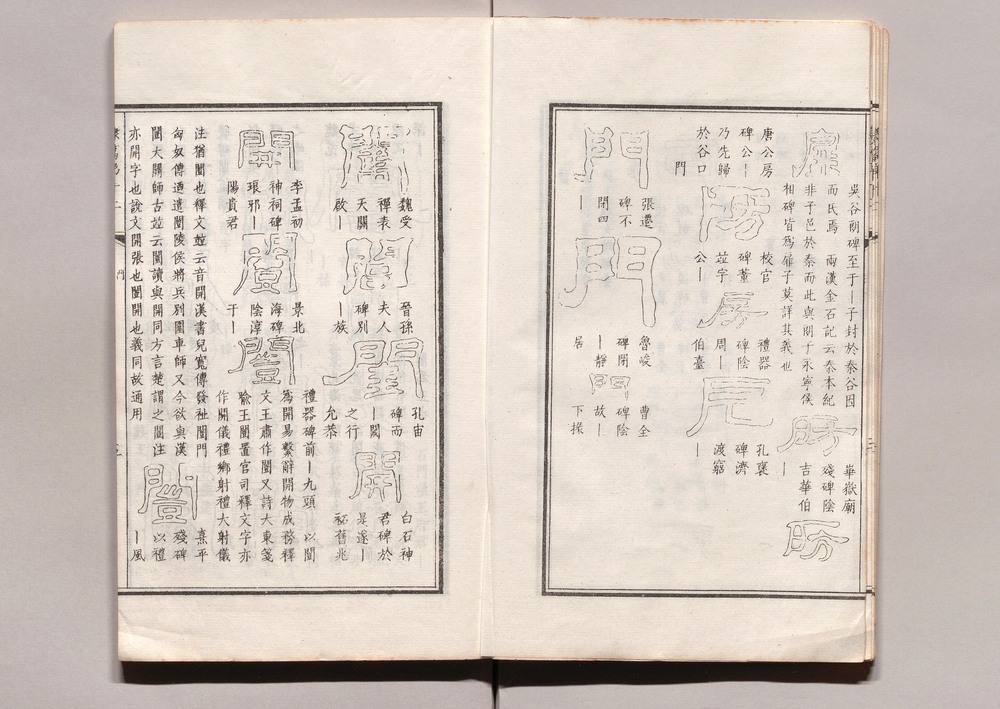 吳谷朗碑至于｜子封於秦谷因
而氏焉 兩漢金石記云秦本紀
非于邑於秦而此與朗于永寧侯
相碑皆爲雁子莫詳其義也
華嶽廟
殘碑陰
吉華伯
｜
唐公房
碑公｜
乃先歸
於谷口
房
校官
碑董
竝字
公｜
房
禮器
碑陰
周｜
伯臺
戹
孔襃
碑濟
渡窮
｜
門
門
張遷
碑不
閉四
｜
門
魯峻
碑閉
｜靜
居
門
曹全
碑陰
故｜
下掾
魏受
禪表
天關
啟｜
晉孫
夫人
碑別
｜族
孔宙
碑而
｜闕
之行
允恭
開
白石神
君碑於
是遂｜
祏舊兆
開
李孟初
神祠碑
琅邪｜
陽貴君
闓
景北
海碑
陰淳
于｜
闓
禮器碑前｜九頭 以闓
爲開易繫辭開物成務釋
文王肅作闓又詩大東箋
喻王闓置官司釋文字亦
作開儀禮鄉射禮大射儀
注猶闓也釋文竝云音開漢書兒寬傳發祉闓門
匈奴傳遒遣闓陵侯將兵別圍車師又今欲與漢
闓大關師古竝云闓讀與開同方言楚謂之闓注
亦開字也說文開張也闓開也義同故通用
闓
熹平
殘碑
以禮
｜風